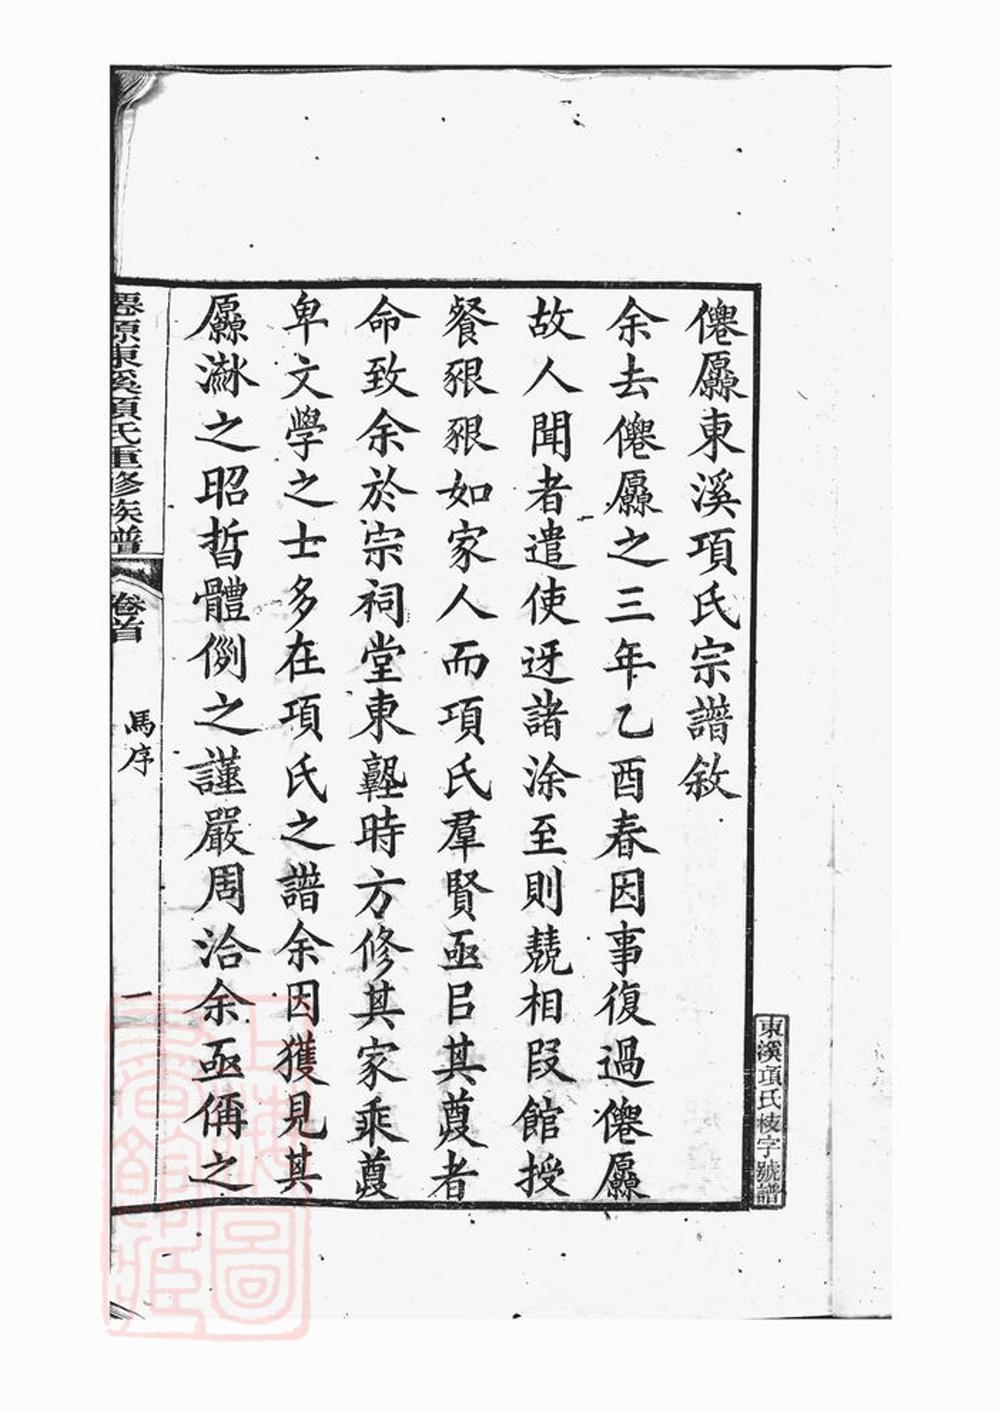 僊厵東溪項氏宗譜敘
余去僊厵之三年乙酉春因事復過僊厵
故人聞者遣使迓諸涂至則兢相叚館授
餐豤豤如家人而項氏羣賢亟㠯其尊者
命致余於宗祠堂東塾時方修其家乘尊
卑文學之士多在項氏之譜余因獲見其
厵漅之昭晢體例之謹嚴周洽余亟偁之
東溪項氏枝字號譜
僊源東溪項氏重修族譜
卷首
馬序
一
上海圖書館藏